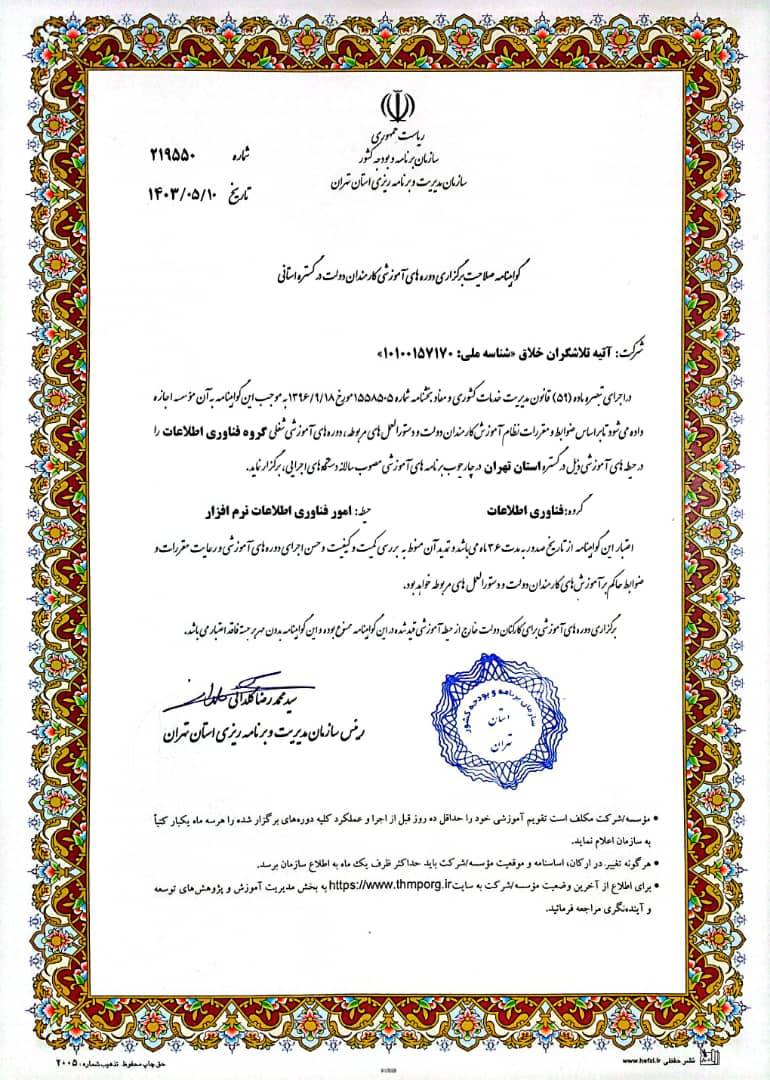 ریاست جمهوری
سازمان برنامه و بودجه کشور
سازمان مدیریت و برنامه ریزی استان تهران
شماره ۲۱۹۵۵۰
تاریخ ۱۴۰۳/۰۵/۱۰
گواهینامه صلاحیت برگزاری دوره های آموزشی کارمندان دولت در گستره استانی
شرکت: آتیه تلاشگران خلاق «شناسه ملی: ۱۰۱۰۰۱۵۷۱۷۰»
در اجرای تبصره ماده (۵۹) قانون مدیریت خدمات کشوری و مفاد بخشنامه شماره ۱۵۵۸۵۰۵ مورخ ۱۳۹۶/۹/۱۸ به موجب این گواهینامه به آن مؤسسه اجازه
داده می شود تا بر اساس ضوابط و مقررات نظام آموزش کارمندان دولت و دستورالعمل های مربوطه، دوره های آموزشی شغلی گروه فناوری اطلاعات را
در حیطه های آموزشی ذیل در گستره استان تهران در چارچوب برنامه های آموزشی مصوب سالانه دستگاه های اجرایی، برگزار نماید.
گروه: فناوری اطلاعات حیطه: امور فناوری اطلاعات نرم افزار
اعتبار این گواهینامه از تاریخ صدور به مدت ۳۶ ماه می باشد و تمدید آن منوط به بررسی کمیت و کیفیت و حسن اجرای دوره های آموزشی و رعایت مقررات و
ضوابط حاکم بر آموزش های کارمندان دولت و دستورالعمل های مربوطه خواهد بود.
برگزاری دوره های آموزشی برای کارکنان دولت خارج از حیطه آموزشی قید شده در این گواهینامه ممنوع بوده و این گواهینامه بدون مهر برجسته فاقد اعتبار می باشد.
سازمان برنامه و بودجه کشور
استان
تهران
سید محمدرضا گلدانی
رئیس سازمان مدیریت و برنامه ریزی استان تهران
• مؤسسه/شرکت مکلف است تقویم آموزشی خود را حداقل ده روز قبل از اجرا و عملکرد کلیه دوره‌های برگزار شده را هرسه ماه یکبار کتباً
به سازمان اعلام نماید.
• هرگونه تغییر در ارکان، اساسنامه و موقعیت مؤسسه/شرکت باید حداکثر ظرف یك ماه به اطلاع سازمان برسد.
• برای اطلاع از آخرین وضعیت مؤسسه/شرکت به سایت https://www.thmporg.ir به بخش مدیریت آموزش و پژوهش‌های توسعه
و آینده‌نگری مراجعه فرمائید.
نشر حفظی www.hefzi.ir
حق چاپ محفوظ تذهیب شماره: ۲۰۰۵